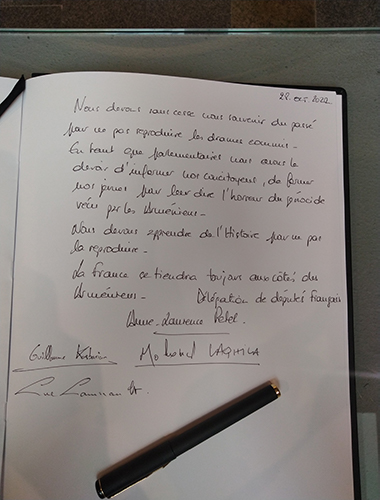 28. oct. 2022
Nous devons sans cesse nous souvenir du passé
pour ne pas reproduire les drames commis -
En tant que parlementaires nous avons le
devoir d'informer nos concitoyens, de former
nos jeunes pour leur dire l'horreur du génocide
vécu par les Arméniens -
Nous devons apprendre de l'Histoire pour ne pas
la reproduire -
La France se tiendra toujours aux côtés des
Arméniens - Délégation de députés français
Anne-Laurence Petel
Guillaume Mohamed LAQHILA
Luc